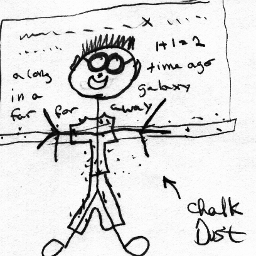 1+1=2
a long time ago
in a galaxy
far far away
chalk
Dust